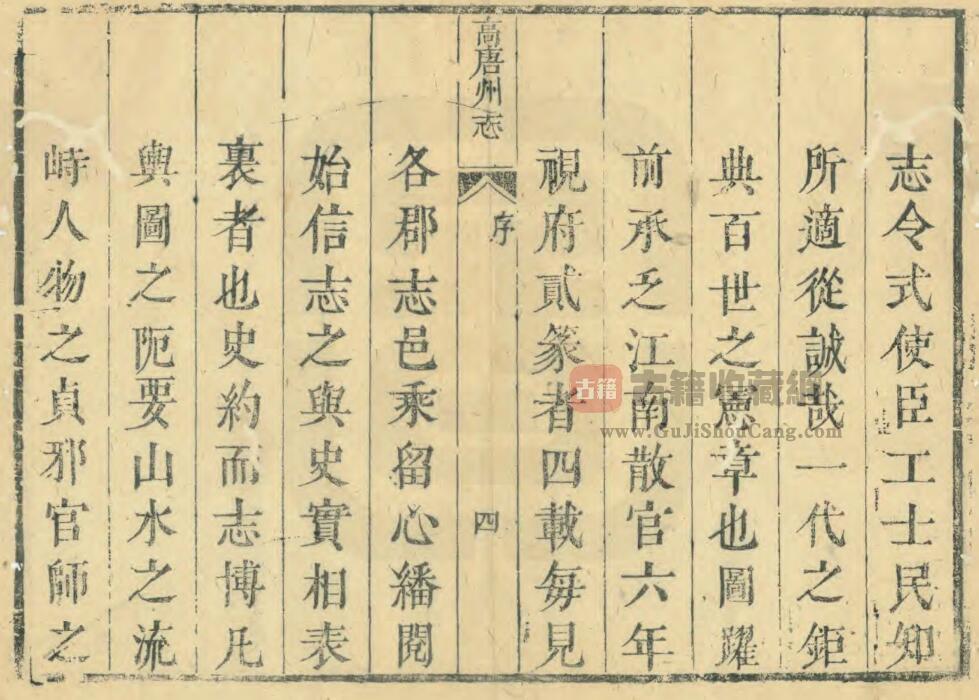 志令式使臣工士民知
所適從誠哉一代之鉅
典百世之憲章也圖躍
前承乏江南散官六年
視府貳篆者四載每見
高唐州志
序
四
各郡志邑乘留心繙閱
始信志之與史實相表
裏者也史約而志博凡
輿圖之阨要山水之流
峙人物之貞邪官師之
古籍
古籍收藏網
www.GuJiShouCang.com